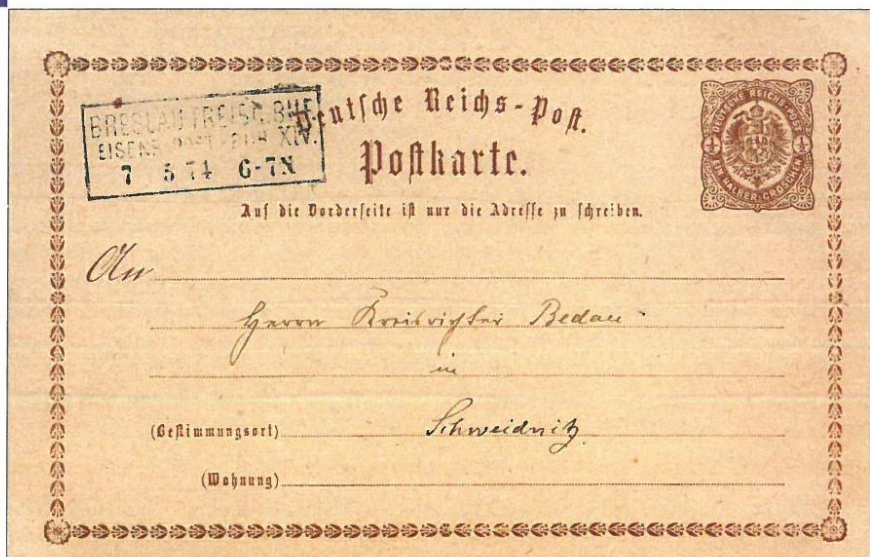 BRESLAU FREIB. BHF
EISENB. POST-BUR. XIV.
7 5 74 6-7N
Deutsche Reichs-Post.
Postkarte.
DEUTSCHE REICHS-POST
½ ½
EIN HALBER GROSCHEN
Auf die Vorderseite ist nur die Adresse zu schreiben.
An
Herrn Kreisrichter Bedau
in
(Bestimmungsort) Schweidnitz
(Wohnung)